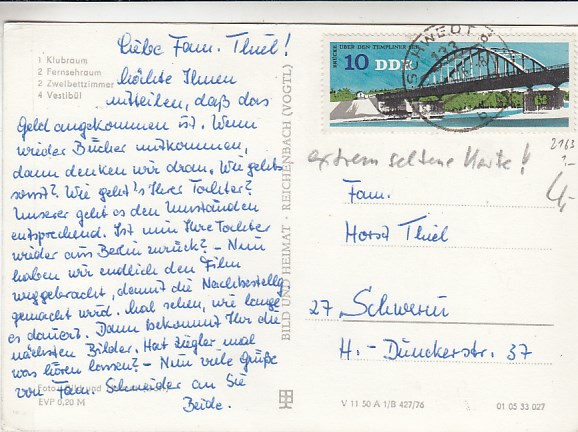 1 Klubraum
2 Fernsehraum
2 Zweibettzimmer
4 Vestibül
Liebe Fam. Thiel!
möchte Ihnen
mitteilen, daß das
Geld angekommen ist. Wenn
wieder Bücher mitkommen,
dann denken wir dran. Wie gehts
sonst? Wie geht's Ihrer Tochter?
Unserer geht es den Umständen
entsprechend. Ist nun Ihre Tochter
wieder aus Berlin zurück? – Nun
haben wir endlich den Film
weggebracht, damit die Nachbestellg
gemacht wird. Mal sehen, wie lange
es dauert. Dann bekommt Ihr die
nächsten Bilder. Hat Zügler mal
was hören lassen? – Nun viele Grüße
von Fam. Schneider an Sie
Beide.
EVP 0,20 M
BILD UND HEIMAT · REICHENBACH (VOGTL)
BRÜCKE ÜBER DEN TEMPLINER SEE
10 DDR
2163
1,–
extrem seltene Karte!
4,-
Fam.
Horst Thiel
27 Schwerin
H.-Dunckerstr. 37
V 11 50 A 1/B 427/76
01 05 33 027